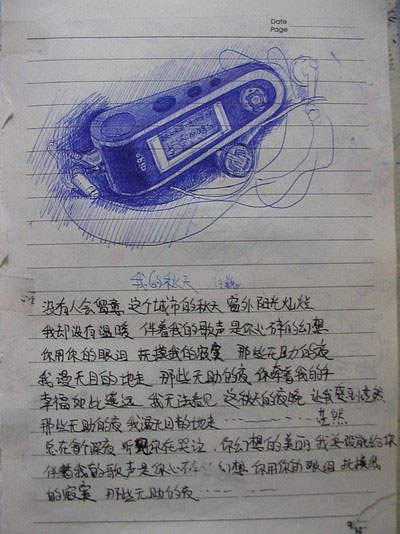 Date
Page
我的秋天 许巍
没有人会留意 这个城市的秋天 窗外阳光灿烂
我却没有温暖 伴着我的歌声 是你心碎的幻想
你用你的眼泪 抚摸我的寂寞 那些无助的夜
我漫无目的地走 那些无助的夜 你牵着我的手
幸福如此遥远 我无法看见 这秋天的夜晚 让我感到茫然
那些无助的夜 我漫无目的地走
总在每个深夜 听见你在哭泣 你幻想的美丽 我无法给你
伴着我的歌声 是你心碎 幻想 你用你的眼泪 抚摸我
的寂寞 那些无助的夜